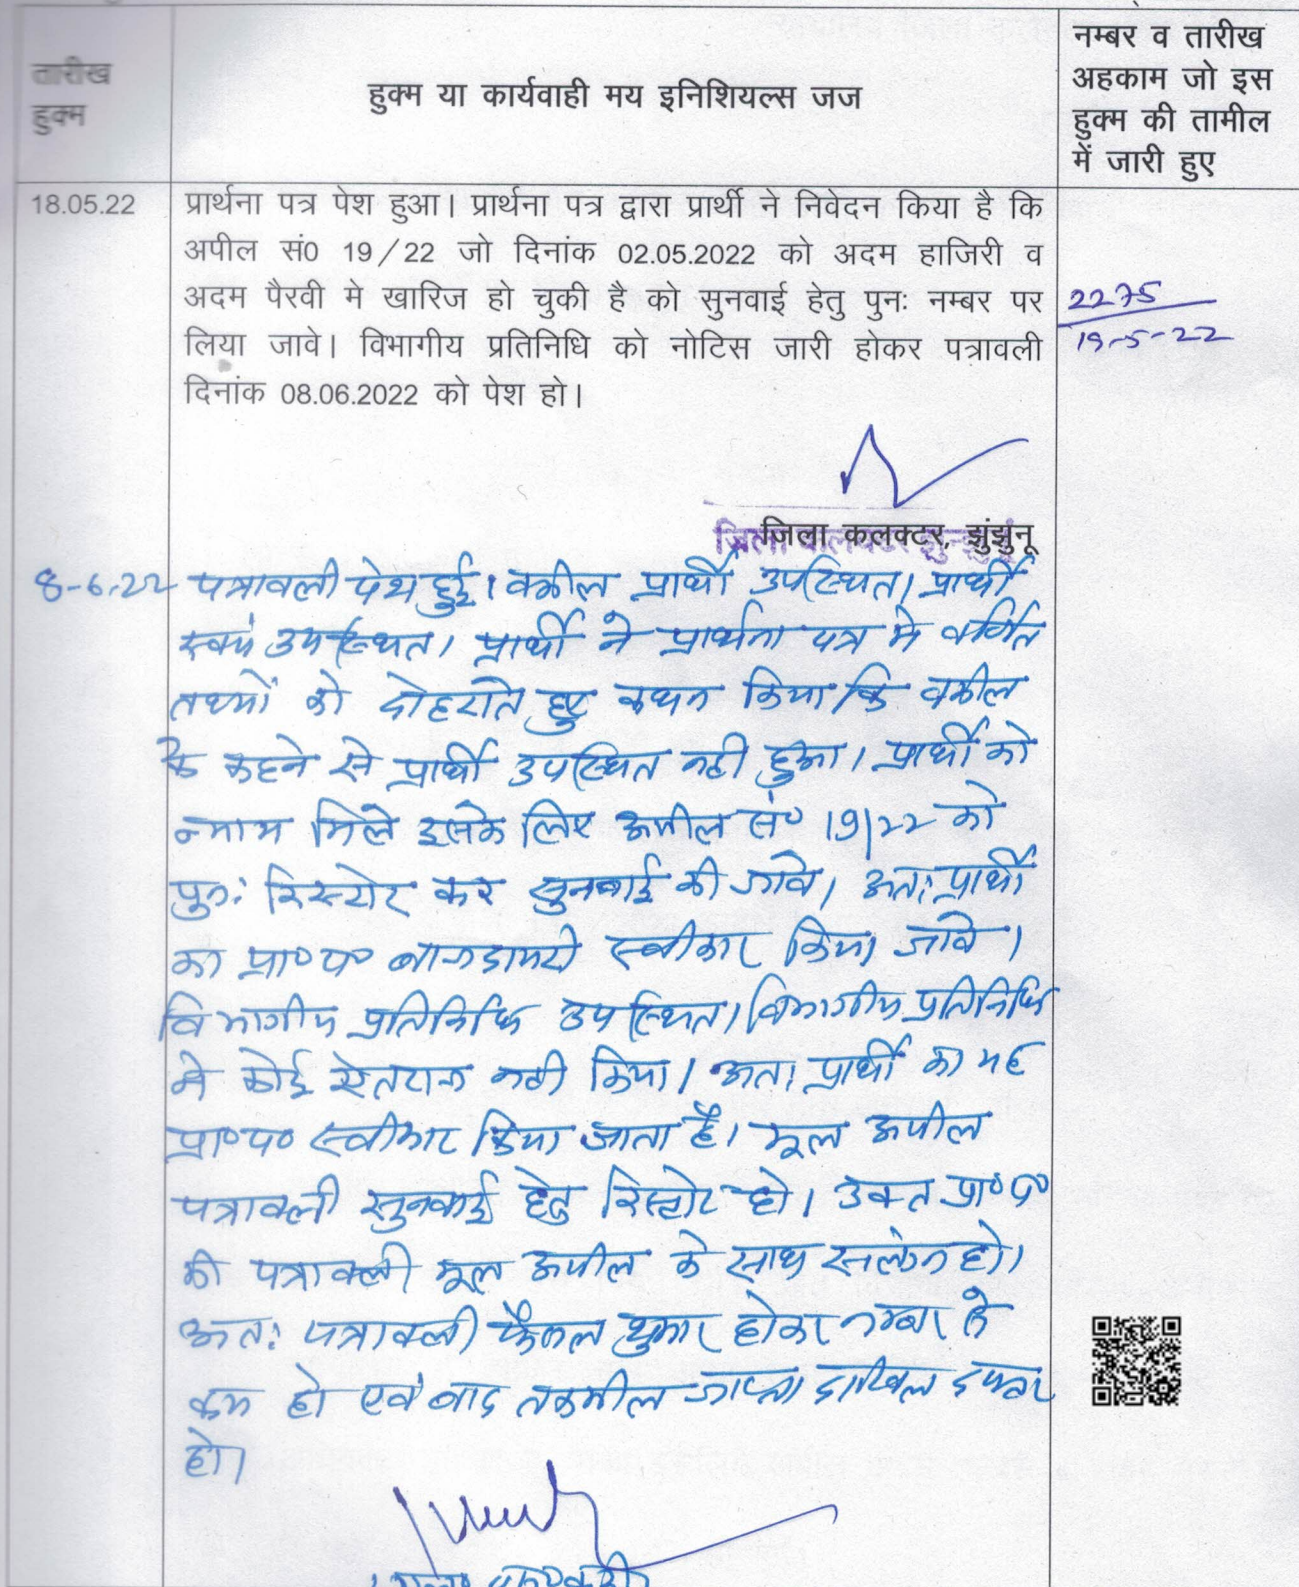 तारीख
हुक्म
हुक्म या कार्यवाही मय इनिशियल्स जज
नम्बर व तारीख
अहकाम जो इस
हुक्म की तामील
में जारी हुए
18.05.22
प्रार्थना पत्र पेश हुआ। प्रार्थना पत्र द्वारा प्रार्थी ने निवेदन किया है कि
अपील सं0 19/22 जो दिनांक 02.05.2022 को अदम हाजिरी व
अदम पैरवी मे खारिज हो चुकी है को सुनवाई हेतु पुनः नम्बर पर
लिया जावे। विभागीय प्रतिनिधि को नोटिस जारी होकर पत्रावली
दिनांक 08.06.2022 को पेश हो।
2275
19-5-22
जिला कलक्टर, झुंझुनू
8-6-22 पत्रावली पेश हुई। वकील प्रार्थी उपस्थित। प्रार्थी
स्वयं उपस्थित। प्रार्थी ने प्रार्थना पत्र मे वर्णित
तथ्यों को दोहराते हुए कथन किया कि वकील
के कहने से प्रार्थी उपस्थित नही हुआ। प्रार्थी को
न्याय मिले इसके लिए अपील सं० 19/22 को
पुनः रिस्टोर कर सुनवाई की जावे। अतः प्रार्थी
का प्रा०प० स्वीकार किया जावे।
विभागीय प्रतिनिधि उपस्थित। विभागीय प्रतिनिधि
ने कोई ऐतराज नही किया। अतः प्रार्थी का यह
प्रा०प० स्वीकार किया जाता है। मूल अपील
पत्रावली सुनवाई हेतु रिस्टोर हो। उक्त प्रा०प०
की पत्रावली मूल अपील के साथ सलंग्न हो।
अतः पत्रावली फैसल शुमार होकर नम्बर से
कम हो एवं बाद तकमील जाप्ता दाखिल दफ्तर
हो।